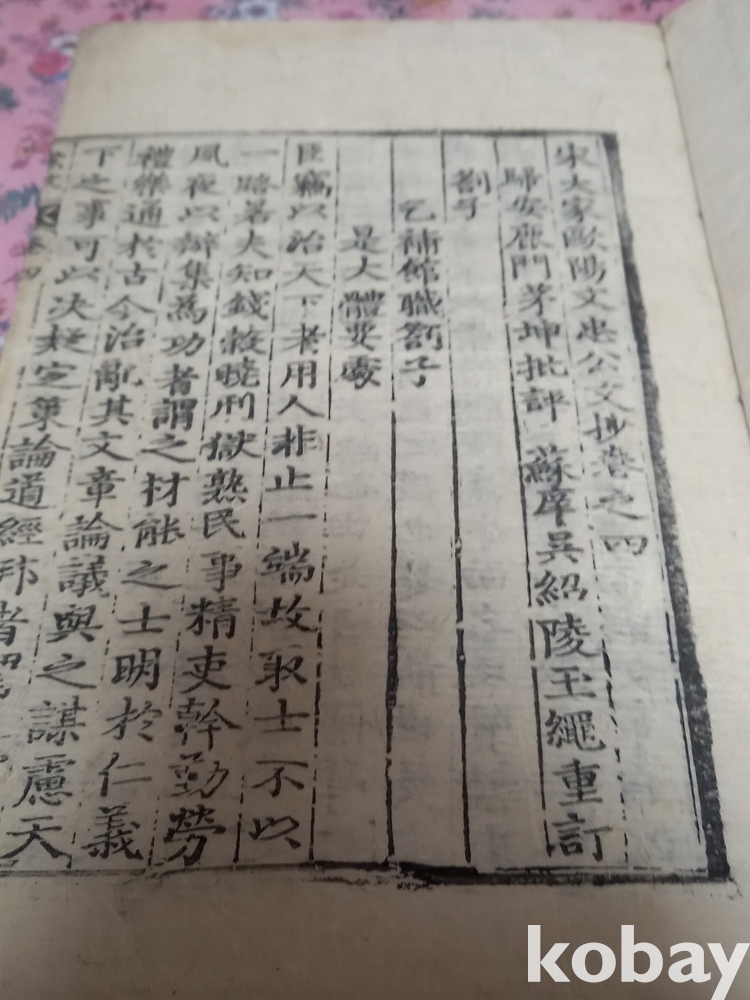 宋大家歐陽文忠公文抄卷之四
歸安鹿門茅坤批評 蘇庠吳紹陵玉繩重訂
劄子
乞補館職劄子
是大體要處
臣竊以治天下者用人非止一端故取士不以
一路若夫知錢穀曉刑獄熟民事精吏幹勤勞
夙夜以辦集為功者謂之材能之士明於仁義
禮樂通於古今治亂其文章論議與之謀慮天
下之事可以決疑定策論道經邦者謂
kobay